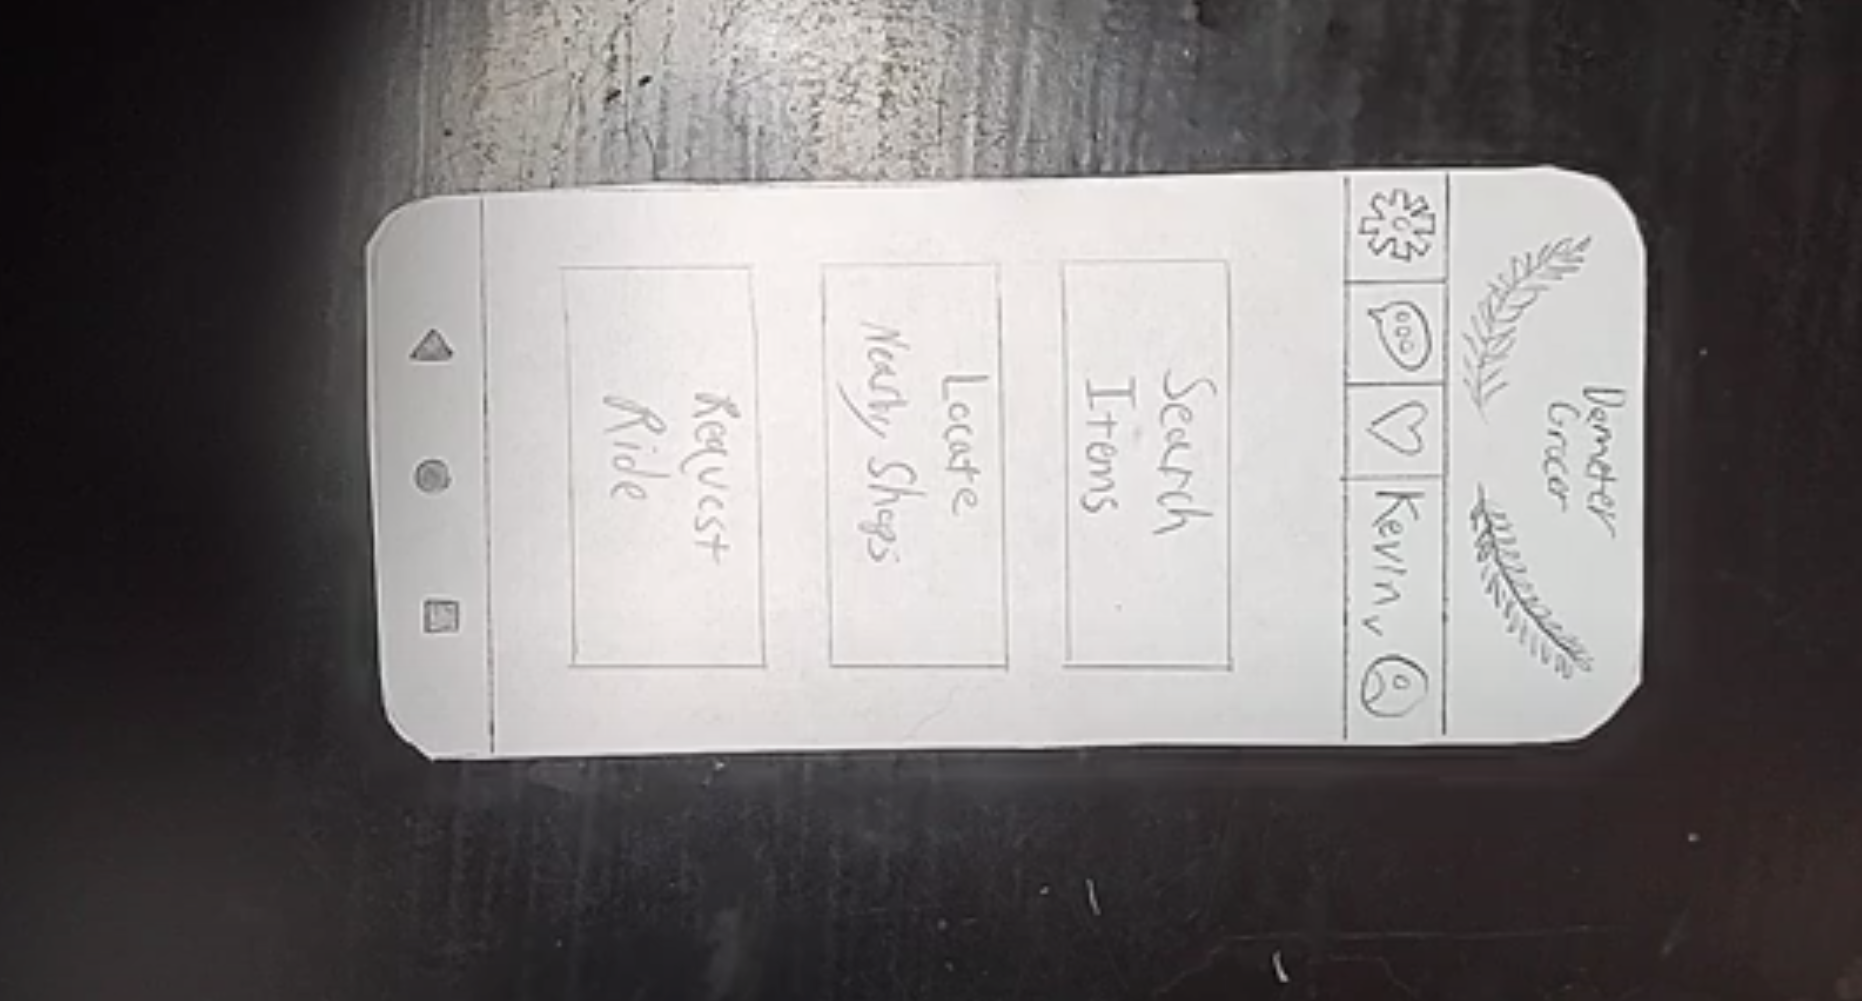 Demeter
Grocer
Kevin
Search
Items
Locate
Nearby Shops
Request
Ride